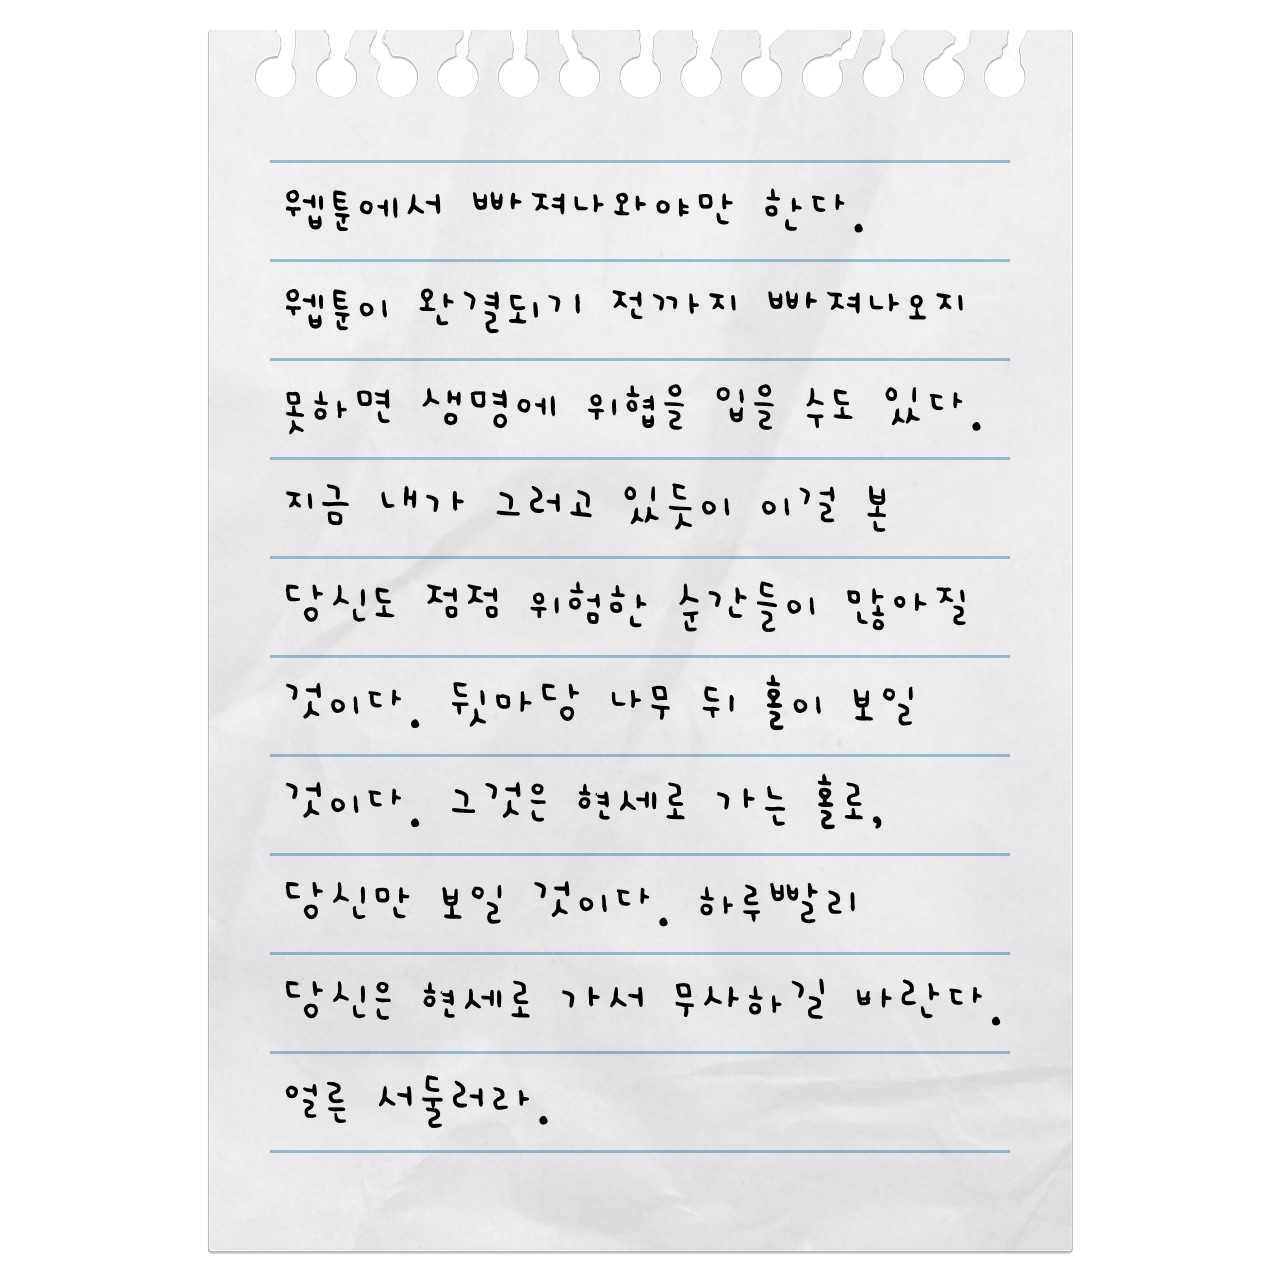 웹툰에서 빠져나와야만 한다.
웹툰이 완결되기 전까지 빠져나오지
못하면 생명에 위협을 입을 수도 있다.
지금 내가 그러고 있듯이 이걸 본
당신도 점점 위험한 순간들이 많아질
것이다. 뒷마당 나무 뒤 홀이 보일
것이다. 그것은 현세로 가는 홀로,
당신만 보일 것이다. 하루빨리
당신은 현세로 가서 무사하길 바란다.
얼른 서둘러라.